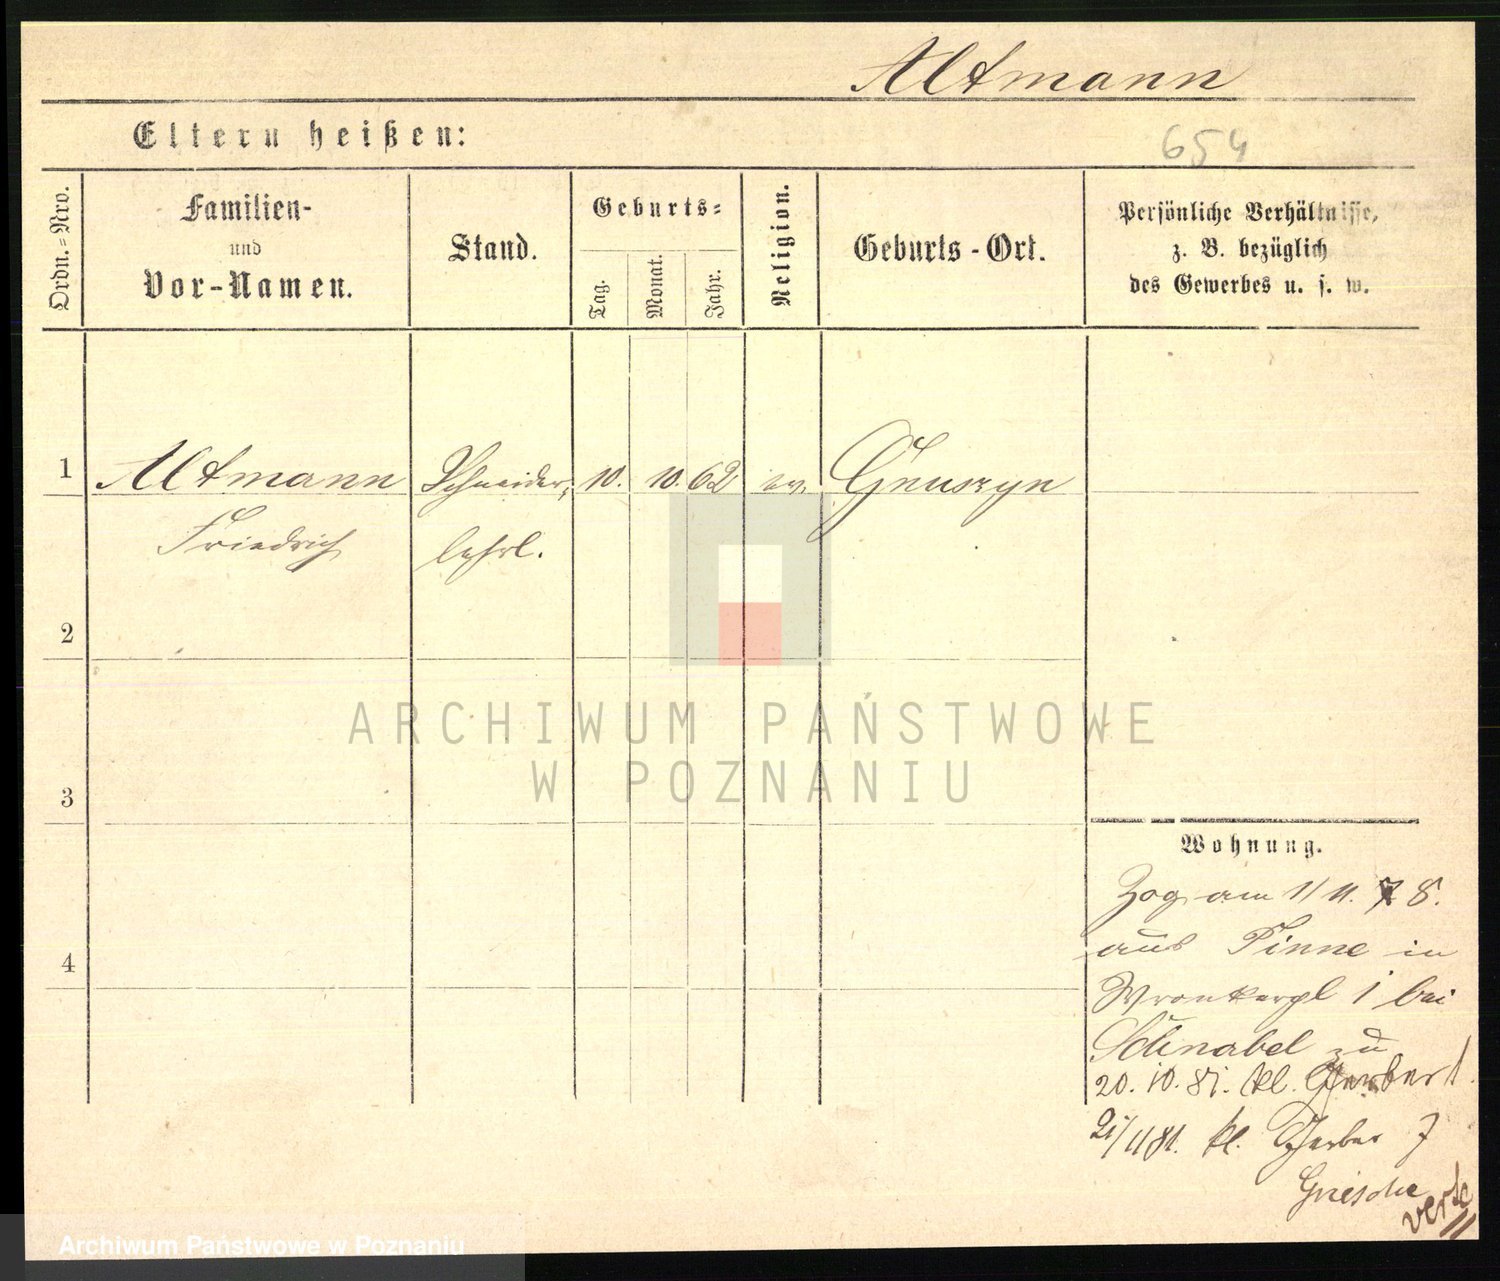 Altmann
Eltern heißen:
654
Ordn.=Nro.
Familien-
und
Vor-Namen.
Stand.
Geburts=
Tag.
Monat.
Jahr.
Religion.
Geburts-Ort.
Persönliche Verhältnisse,
z. B. bezüglich
des Gewerbes u. s. w.
1 Altmann Schneider, 10. 10. 62 ev. Gnuszyn
Friedrich lehrl.
2
ARCHIWUM PAŃSTWOWE
W POZNANIU
3
Wohnung.
Zog am 1/11. 78.
aus Pinne in
4
Wronkergl 1 bei
Schnabel zu
20. 10. 81. kl. Gerberst.
21/11 81. kl. Gerber 7
Griesche
verte
Archiwum Państwowe w Poznaniu